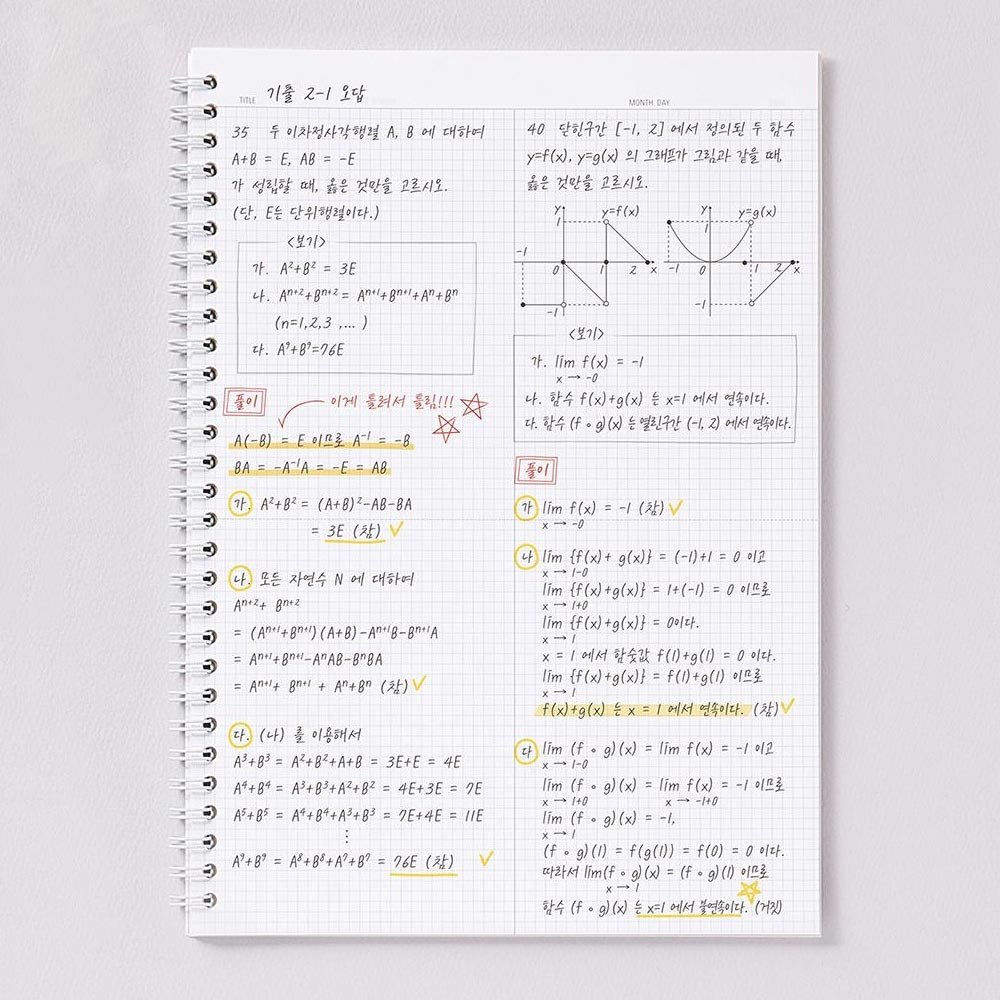 TITLE 기출 2-1 오답
MONTH. DAY
35 두 이차정사각행렬 A, B 에 대하여
A+B = E, AB = -E
가 성립할 때, 옳은 것만을 고르시오.
(단, E는 단위행렬이다.)
<보기>
가. A²+B² = 3E
나. Aⁿ⁺²+Bⁿ⁺² = Aⁿ⁺¹+Bⁿ⁺¹+Aⁿ+Bⁿ
(n=1,2,3 ,... )
다. A⁹+B⁹=76E
풀이
이게 틀려서 틀림!!!
A(-B) = E 이므로 A⁻¹ = -B
BA = -A⁻¹A = -E = AB
가. A²+B² = (A+B)²-AB-BA
= 3E (참)
나. 모든 자연수 N 에 대하여
Aⁿ⁺²+ Bⁿ⁺²
= (Aⁿ⁺¹+Bⁿ⁺¹)(A+B)-Aⁿ⁺¹B-Bⁿ⁺¹A
= Aⁿ⁺¹+Bⁿ⁺¹-AⁿAB-BⁿBA
= Aⁿ⁺¹+ Bⁿ⁺¹ + Aⁿ+Bⁿ (참)
다. (나) 를 이용해서
A³+B³ = A²+B²+A+B = 3E+E = 4E
A⁴+B⁴ = A³+B³+A²+B² = 4E+3E = 7E
A⁵+B⁵ = A⁴+B⁴+A³+B³ = 7E+4E = 11E
⋮
A⁹+B⁹ = A⁸+B⁸+A⁷+B⁷ = 76E (참)
40 닫힌구간 [-1, 2] 에서 정의된 두 함수
y=f(x), y=g(x) 의 그래프가 그림과 같을 때,
옳은 것만을 고르시오.
y y=f(x)
1
-1
0 1 2 x
-1
y y=g(x)
1
-1 0 1 2 x
-1
<보기>
가. lim f(x) = -1
x → -0
나. 함수 f(x)+g(x) 는 x=1 에서 연속이다.
다. 함수 (f ∘ g)(x) 는 열린구간 (-1, 2) 에서 연속이다.
풀이
가 lim f(x) = -1 (참)
x → -0
나 lim {f(x)+ g(x)} = (-1)+1 = 0 이고
x → 1-0
lim {f(x)+g(x)} = 1+(-1) = 0 이므로
x → 1+0
lim {f(x)+g(x)} = 0이다.
x → 1
x = 1 에서 함숫값 f(1)+g(1) = 0 이다.
lim {f(x)+g(x)} = f(1)+g(1) 이므로
x → 1
f(x)+g(x) 는 x = 1 에서 연속이다. (참)
다 lim (f ∘ g)(x) = lim f(x) = -1 이고
x → 1-0
lim (f ∘ g)(x) = lim f(x) = -1 이므로
x → 1+0 x → -1+0
lim (f ∘ g)(x) = -1,
x → 1
(f ∘ g)(1) = f(g(1)) = f(0) = 0 이다.
따라서 lim(f ∘ g)(x) = (f ∘ g)(1) 이므로
x → 1
함수 (f ∘ g)(x) 는 x=1 에서 불연속이다. (거짓)